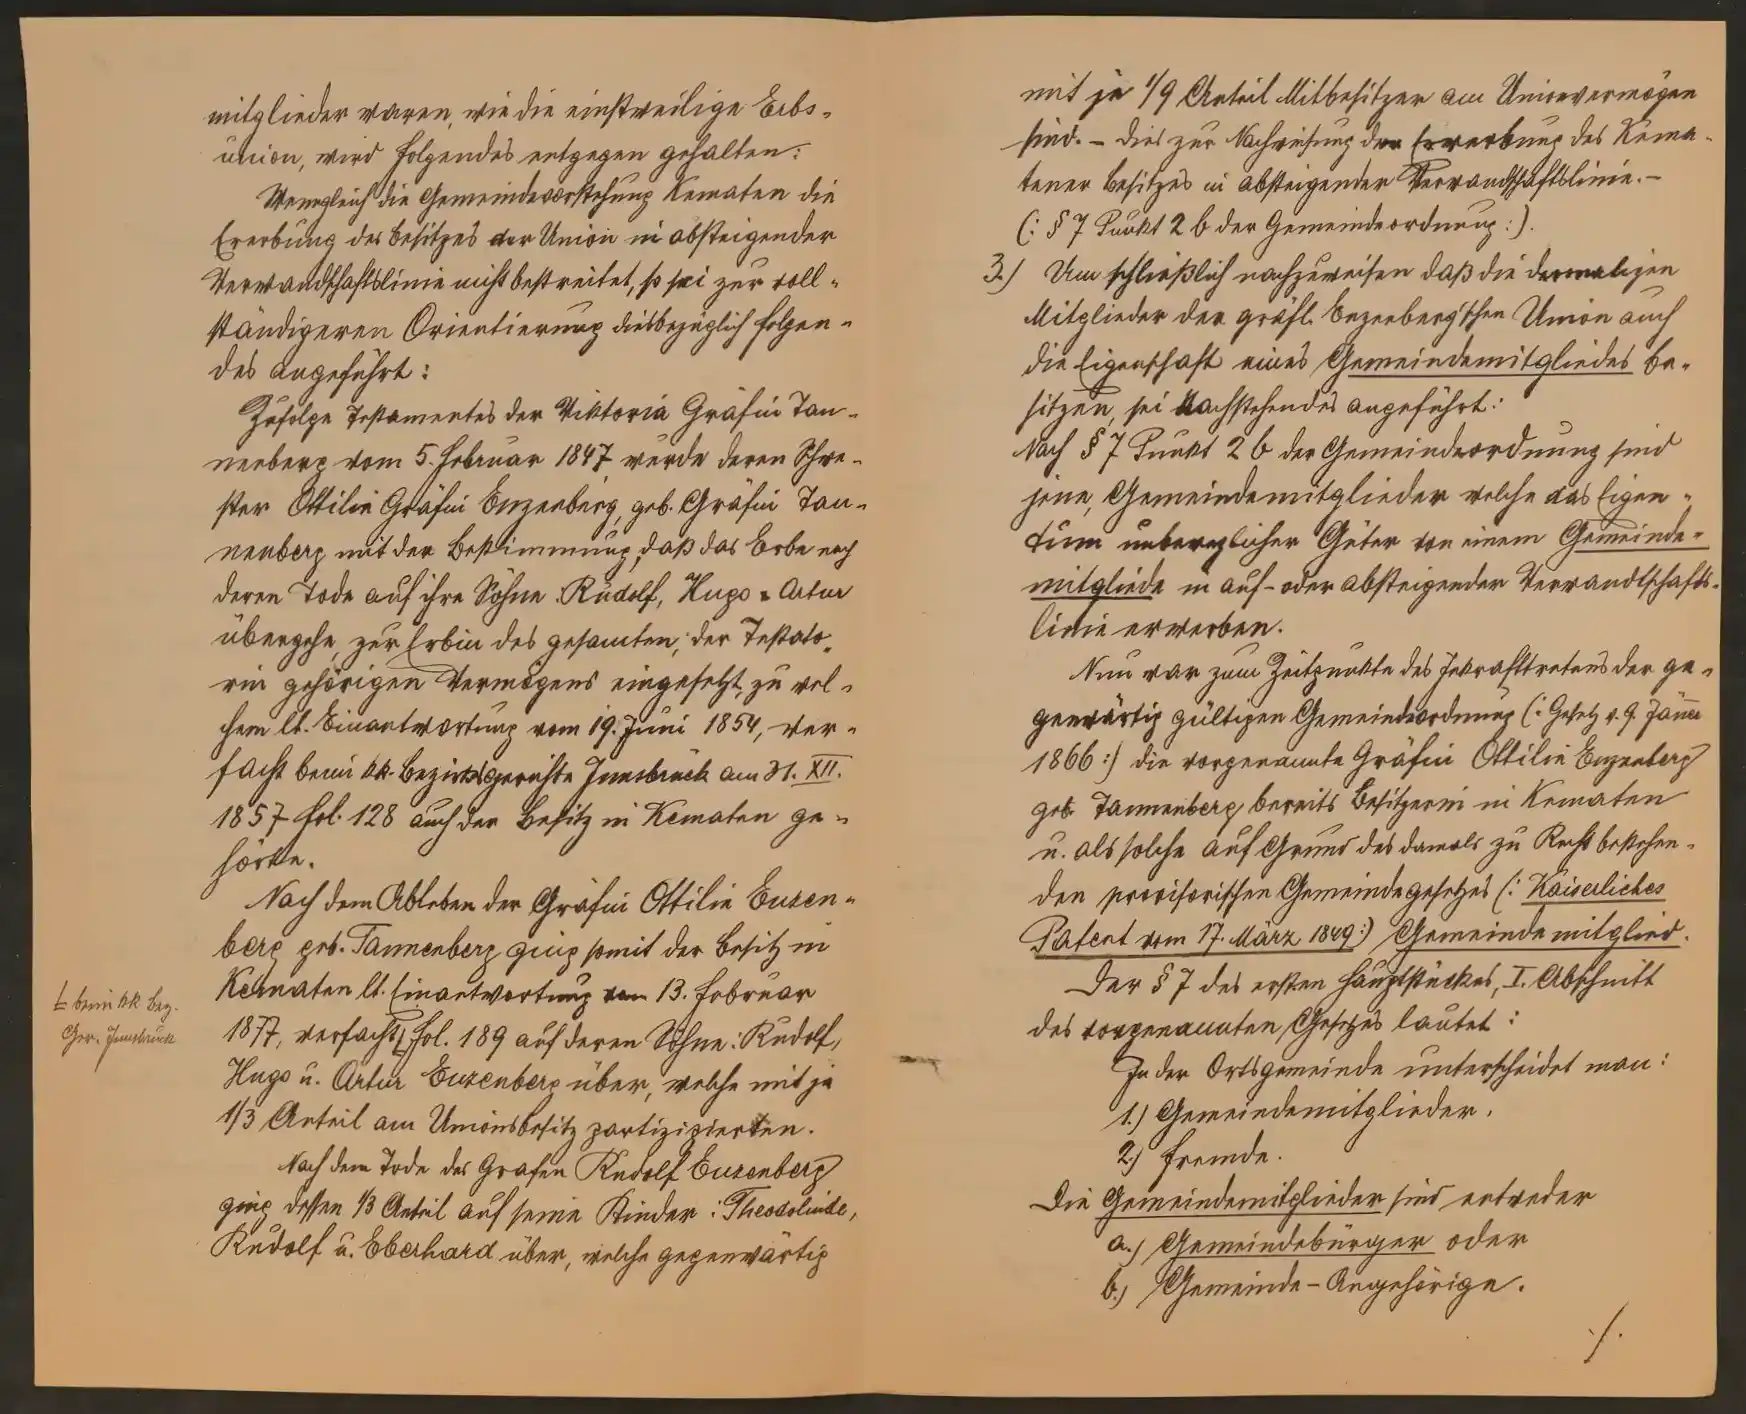 mitglieder waren, wie die einstweilige Erbs-
union, wird folgendes entgegen gehalten:
Wenngleich die Gemeindevorstehung Kematen die
Ererbung des Besitzes der Union in absteigender
Verwandschaftslinie nicht bestreitet, so sei zur voll-
ständigeren Orientierung diesbezüglich folgen-
des angeführt:
Zufolge Testamentes der Viktoria Gräfin Tan-
nenberg vom 5. Februar 1847 wurde deren Schwe-
ster Ottilie Gräfin Enzenberg, geb. Gräfin Tan-
nenberg mit der Bestimmung, daß das Erbe nach
deren Tode auf ihre Söhne Rudolf, Hugo u. Artur
übergehe, zur Erbin des gesamten, der Testato-
rin gehörigen Vermögens eingesetzt, zu wel-
chem lt. Einantwortung vom 19. Juni 1854, ver-
facht beim kk. Bezirksgerichte Innsbruck am 31. XII.
1857 fol. 128 auch der Besitz in Kematen ge-
hörte.
Nach dem Ableben der Gräfin Ottilie Enzen-
berg geb. Tannenberg ging somit der Besitz in
Kematen lt. Einantwortung vom 13. Februar
1877, verfacht ⌊ fol. 189 auf deren Söhne: Rudolf,
⌊ beim kk Bez.
Ger. Innsbruck
Hugo u. Artur Enzenberg über, welche mit je
1/3 Anteil am Unionsbesitz partizipierten.
Nach dem Tode des Grafen Rudolf Enzenberg
ging dessen 1/3 Anteil auf seine Kinder: Theodolinde,
Rudolf u. Eberhard über, welche gegenwärtig
mit je 1/9 Anteil Mitbesitzer am Unionvermögen
sind. – Dies zur Nachweisung der Erwerbung des Kema-
tener Besitzes in absteigender Verwandschaftslinie. –
(: § 7 Punkt 2 b der Gemeindeordnung :).
3.) Um schließlich nachzuweisen daß die dermaligen
Mitglieder der gräfl. Enzenberg'schen Union auch
die Eigenschaft eines Gemeindemitgliedes be-
sitzen, sei Nachstehendes angeführt:
Nach § 7 Punkt 2 b der Gemeindeordnung sind
jene, Gemeindemitglieder welche das Eigen-
tum unbeweglicher Güter von einem Gemeinde-
mitgliede in auf- oder absteigender Verwandtschafts-
linie erwerben.
Nun war zum Zeitpunkte des Inkrafttretens der ge-
genwärtig gültigen Gemeindeordnung (: Gesetz v. 9. Jänner
1866 :) die vorgenannte Gräfin Ottilie Enzenberg
geb. Tannenberg bereits Besitzerin in Kematen
u. als solche auf Grund des damals zu Recht bestehen-
den provisorischen Gemeindegesetzes (: Kaiserliches
Patent vom 17. März 1849 :) Gemeindemitglied.
Der § 7 des ersten Hauptstückes, I. Abschnitt
des vorgenannten Gesetzes lautet:
In der Ortsgemeinde unterscheidet man:
1.) Gemeindemitglieder.
2.) Fremde.
Die Gemeindemitglieder sind entweder
a.) Gemeindebürger oder
b.) Gemeinde-Angehörige.
./.